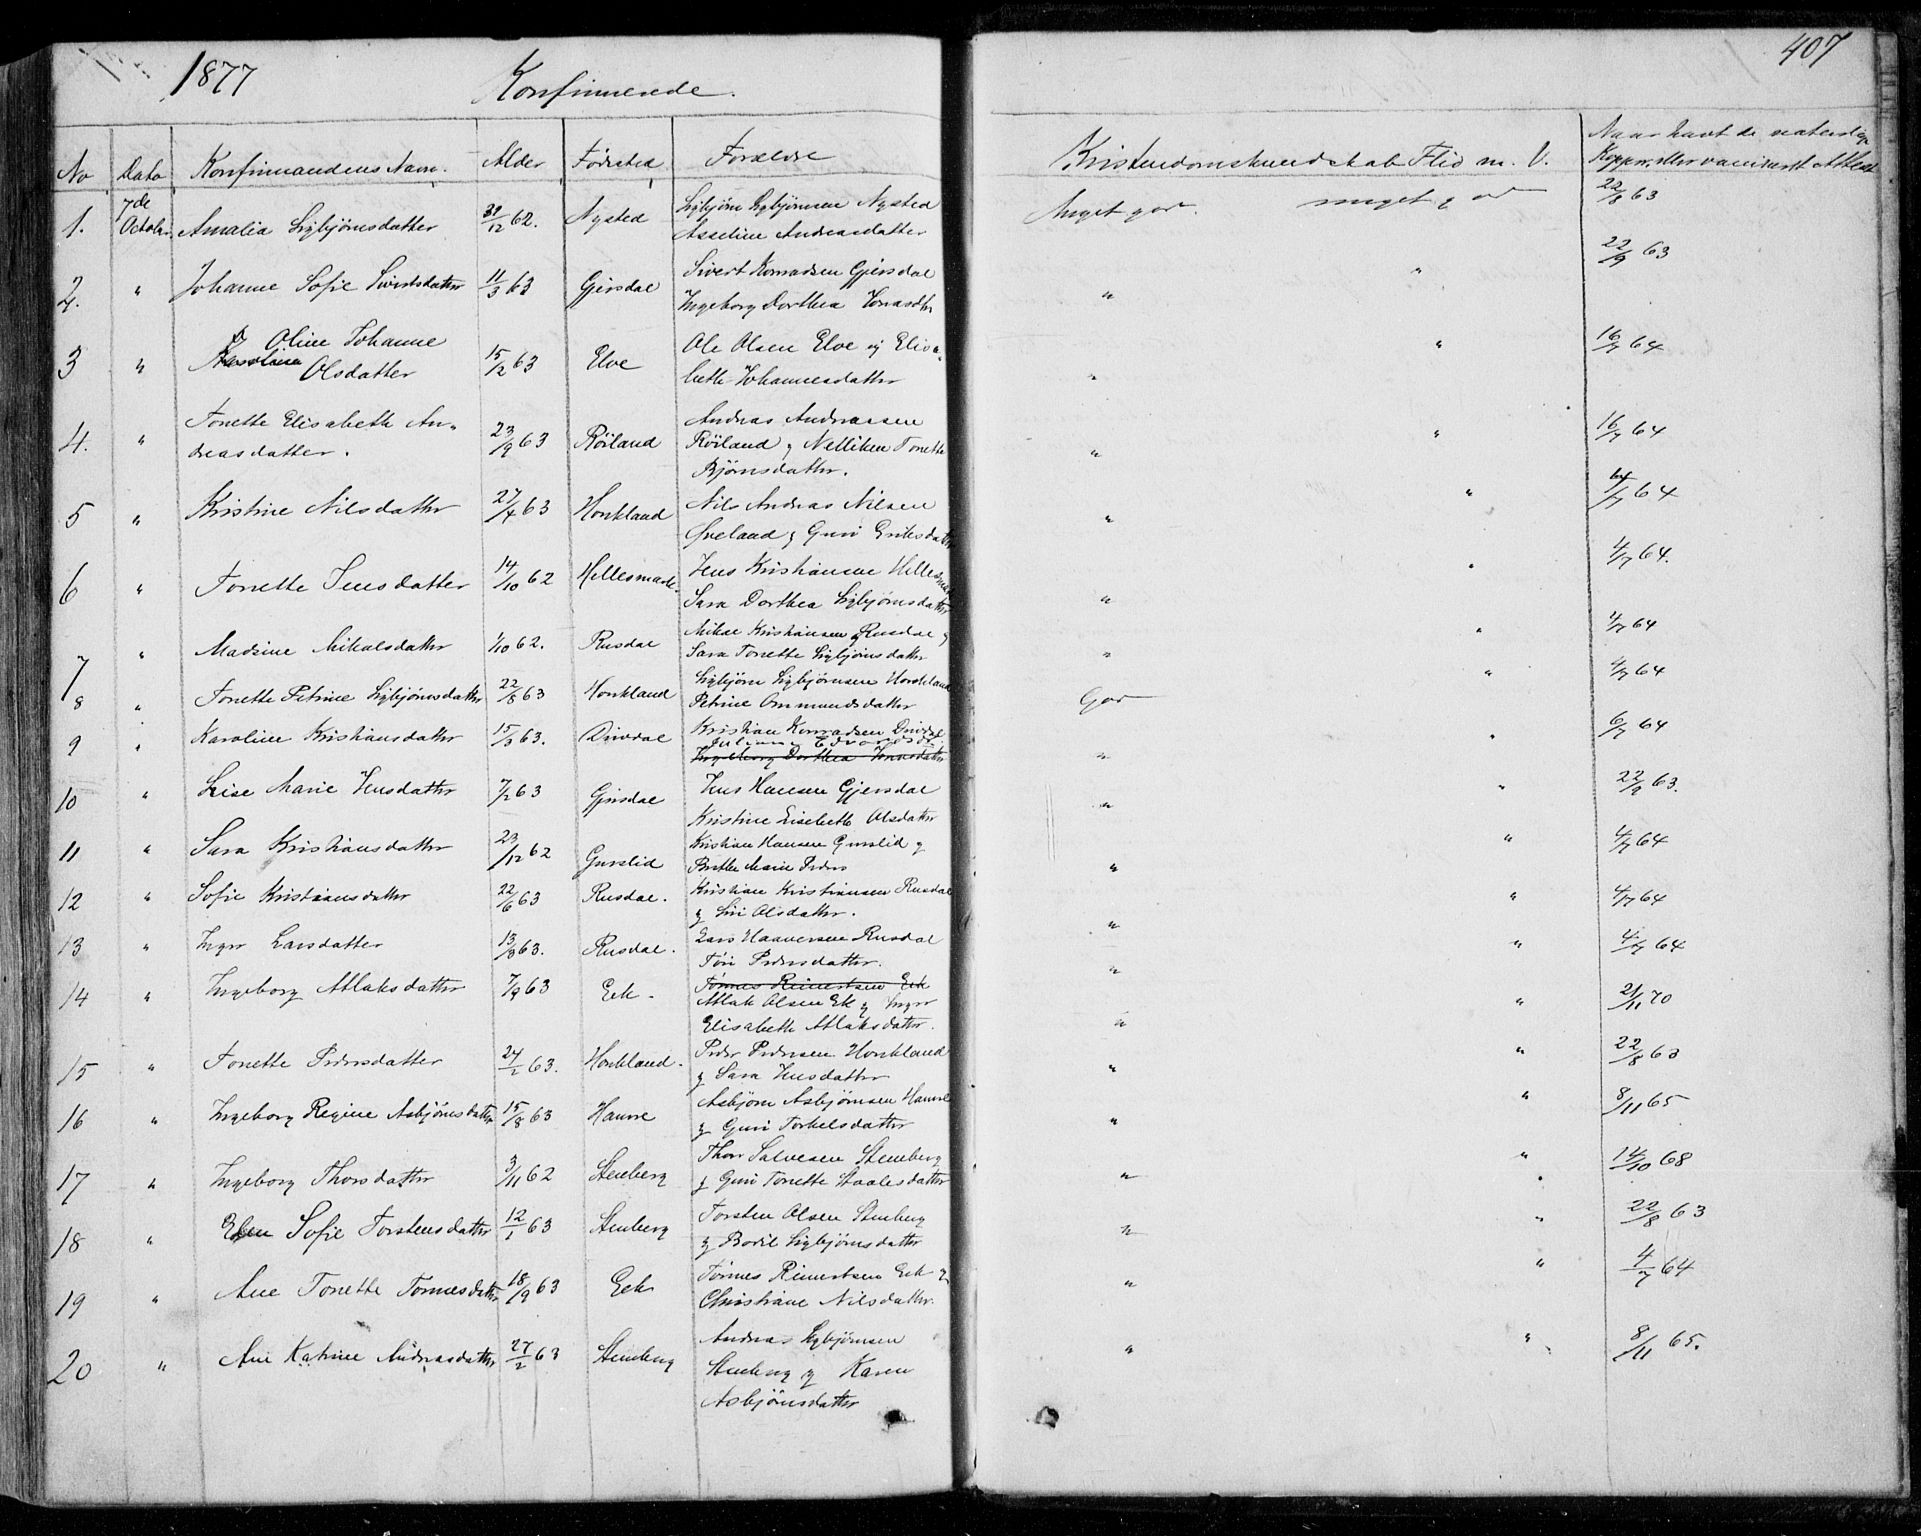 1877 Konfirmerede. 407
No Dato Konfirmandens Navn. Alder Födested Forældre Kristendomskundskab Flid m. V. Naar havt de naturlige
Kopper eller vaccineret Attest
1. 7de Octobr Amalia Sigbjörnsdatter 31/12 62. Nysted Sigbjörn Sigbjörnsen Nysted Meget god. meget god 22/8 63
Asseline Andreasdatter
2. " Johanne Sofie Sivertsdatter 11/3 63 Gjersdal Sivert Konradsen Gjersdal " " 22/9 63
Ingeborg Dorthea Jonasdtr
3 " Oline Johanne 15/2 63 Elve Ole Olsen Elve og Elisa- " " 16/7 64
Olsdatter beth Johannesdatter
4. " Tonette Elisabeth An- 23/9 63 Röiland Andreas Andreassen " " 16/7 64
dreasdatter. Röiland og Nelliken Tonette
Björnsdatter.
5 " Kristine Nilsdatter 27/4 63 Honkland Nils Andreas Nilsen " " 64
Öveland og Guri Eriksdatter
6 " Tonette Jensdatter 14/10 62 Hellesmark. Jens Kristiansen Hellesmark " " 4/7 64.
Sara Dorthea Sigbjörnsdatter
7 " Madsine Mikalsdatter 1/10 62. Rusdal Mikal Kristiansen Rusdal og " " 4/7 64
Sara Tonette Sigbjörnsdatter
8 " Tonette Petrine Sigbjörnsdatter 22/8 63 Honkland Sigbjörn Sigbjörnsen Honkland God " 4/7 64
Petrine Ommundsdatter
9 " Karoline Kristiansdatter 15/3 63. Divdal Kristian Konradsen Divdal " " 6/7 64
Juliane Edvardsdtr
Ingeborg Dorthea Jonasdatter
10 " Lise Marie Jensdatter 7/2 63 Gjersdal Jens Hansen Gjersdal " " 22/9 63.
Kristine Lisebeth Olsdatter
11 " Sara Kristiansdatter 23/12 62 Gurslid Kristian Hansen Gurslid og " " 4/7 64
Berthe Marie Peders
12 " Sofie Kristiansdatter 22/6 63 Rusdal. Kristian Kristiansen Rusdal " " 4/7 64
og Siri Olsdatter.
13 " Inger Larsdatter 13/3 63. Rusdal. Lars Haaversen Rusdal " " 4/7 64
Töri Pedersdatter.
14 " Ingeborg Atlaksdatter 7/9 63 Eek. Tönnes Reinertsen Eek " " 21/11 70
Atlak Olsen Ek og Inger
Elisabeth Atlaksdatter.
15 " Tonette Pedersdatter 24/2 63. Honkland. Peder Pedersen Honkland " " 22/8 63
og Sara Jensdatter
16 " Ingeborg Regine Asbjörnsdatter 15/8 63 Haune Asbjörn Asbjörnsen Haune " " 8/11 65
og Guri Torkelsdatter
17 " Ingeborg Thorsdatter 3/11 62 Stenberg Thor Salvesen Stenberg " " 14/10 68
og Guri Tonette Staalesdatter
18 " Elen Sofie Torstensdatter 12/1 63 Stenberg Torsten Olsen Stenberg " " 22/8 63
og Boril Sigbjörnsdatter
19 " Ane Tonette Tönnesdatter 18/9 63 Eek Tönnes Reinertsen Eek og " " 4/7 64
Christiane Nilsdatter.
20 " Ane Katrine Andreasdatter 27/2 63 Stenberg Andreas Sigbjörnsen " " 8/11 65.
Stenberg og Karen
Asbjörnsdatter